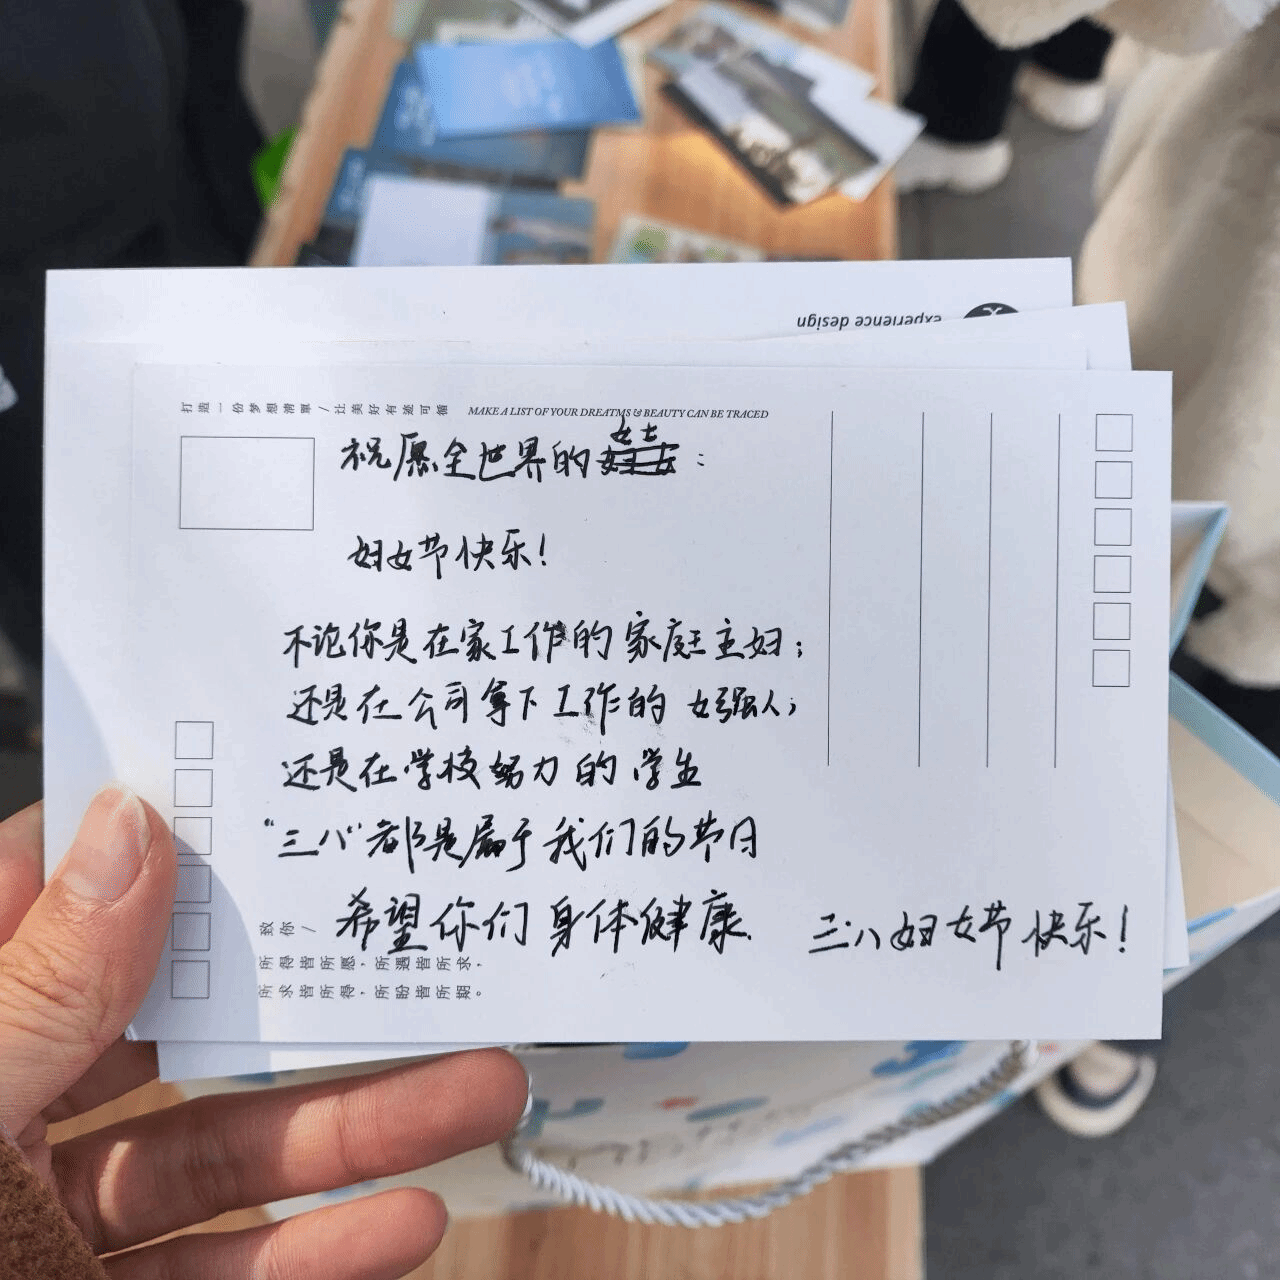 experience design
打造一份梦想清單 / 让美好有迹可循
MAKE A LIST OF YOUR DREATMS & BEAUTY CAN BE TRACED
祝愿全世界的女士:
妇女节快乐!
不论你是在家工作的家庭主妇;
还是在公司拿下工作的女强人;
还是在学校努力的学生
“三八”都是属于我们的节日
希望你们身体健康.
三·八妇女节快乐!
致你 /
所得皆所愿，所遇皆所求，
所求皆所得，所盼皆所期。